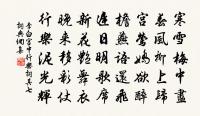 寒雪梅中盡
春風柳上歸
宮鶯嬌欲醉
檐燕語還飛
遲日明歌席
新花艷舞衣
晚來移彩仗
行樂泥光輝
李白宮中行樂詞其七
詞典網集